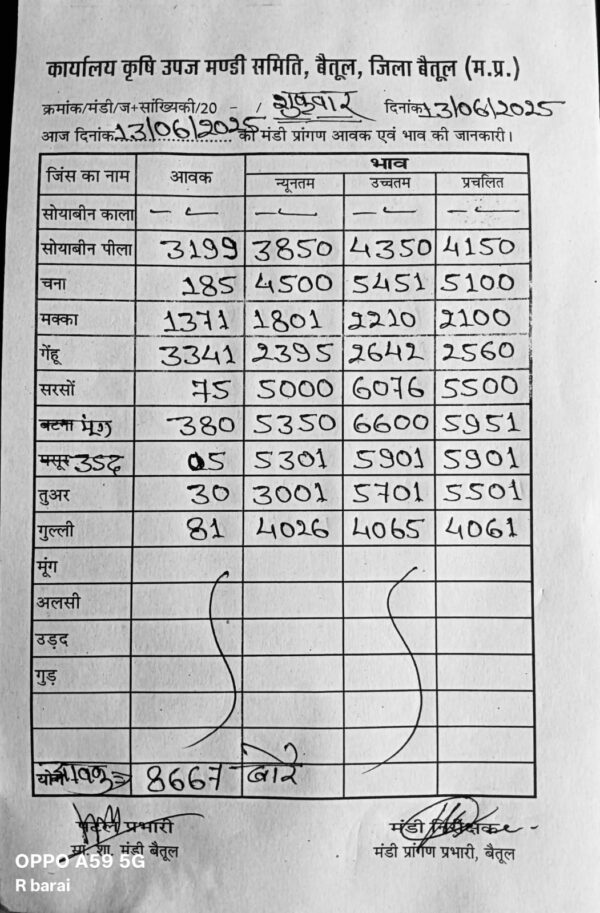 कार्यालय कृषि उपज मण्डी समिति, बैतूल, जिला बैतूल (म.प्र.)
क्रमांक/मंडी/ज+सांख्यिकी/20 - / शुक्रवार दिनांक 13/06/2025
आज दिनांक 13/06/2025 की मंडी प्रांगण आवक एवं भाव की जानकारी।
जिंस का नाम आवक भाव
न्यूनतम उच्चतम प्रचलित
सोयाबीन काला — — — —
सोयाबीन पीला 3199 3850 4350 4150
चना 185 4500 5451 5100
मक्का 1371 1801 2210 2100
गेंहू 3341 2395 2642 2560
सरसों 75 5000 6076 5500
बटना मूंग 380 5350 6600 5951
मसूर उड़द 05 5301 5901 5901
तुअर 30 3001 5701 5501
गुल्ली 81 4026 4065 4061
मूंग
अलसी
उड़द
गुड़
योग आवक 8667 बोरे
प्रभारी मंडी निरीक्षक
मंडी बैतूल मंडी प्रांगण प्रभारी, बैतूल
OPPO A59 5G
R barai